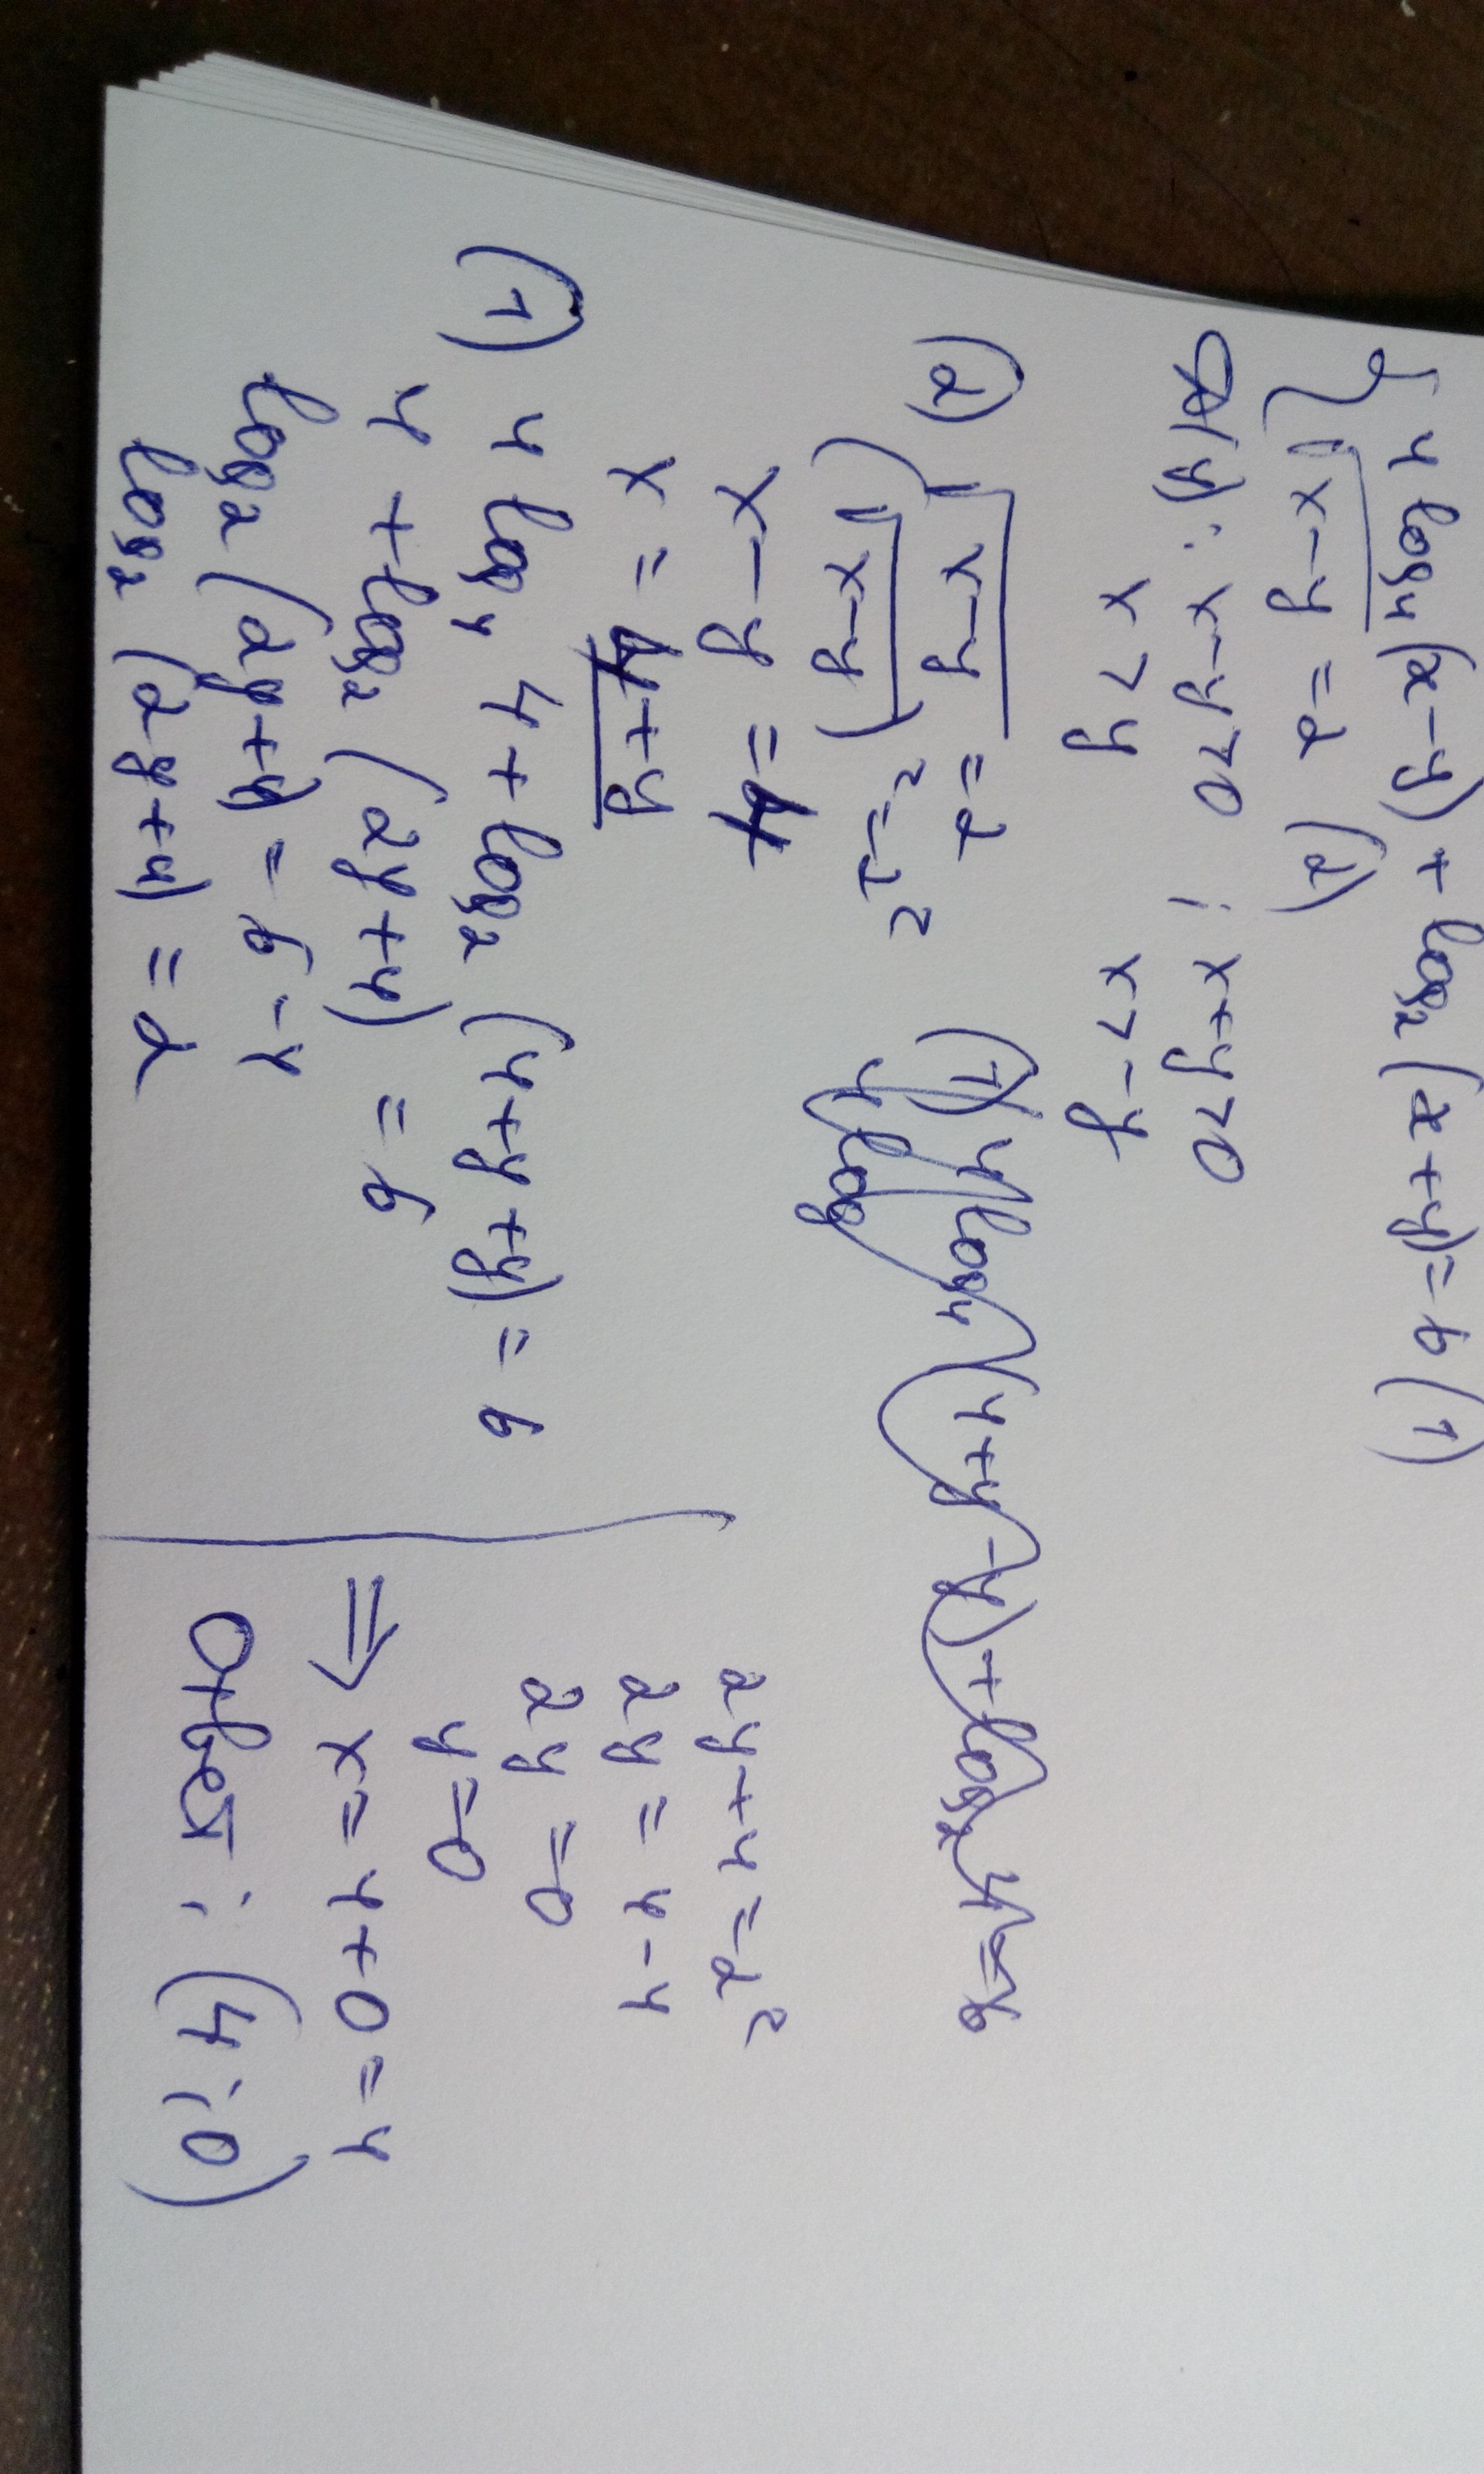 { 4 log₄(x-y) + log₂(x+y) = 6 (1)
√(x-y) = 2 (2)
x-y>0 ; x+y>0
x>y x>-y
(2) √(x-y) = 2
(√(x-y))² = 2²
x-y = 4
x = 4+y
(1) 4 log₄ 4 + log₂(4+y+y) = 6
4 + log₂(2y+4) = 6
log₂(2y+4) = 6-4
log₂(2y+4) = 2
2y+4 = 2²
2y = 4-4
2y = 0
y = 0
⇒ x = 4+0 = 4
Ответ: (4;0)